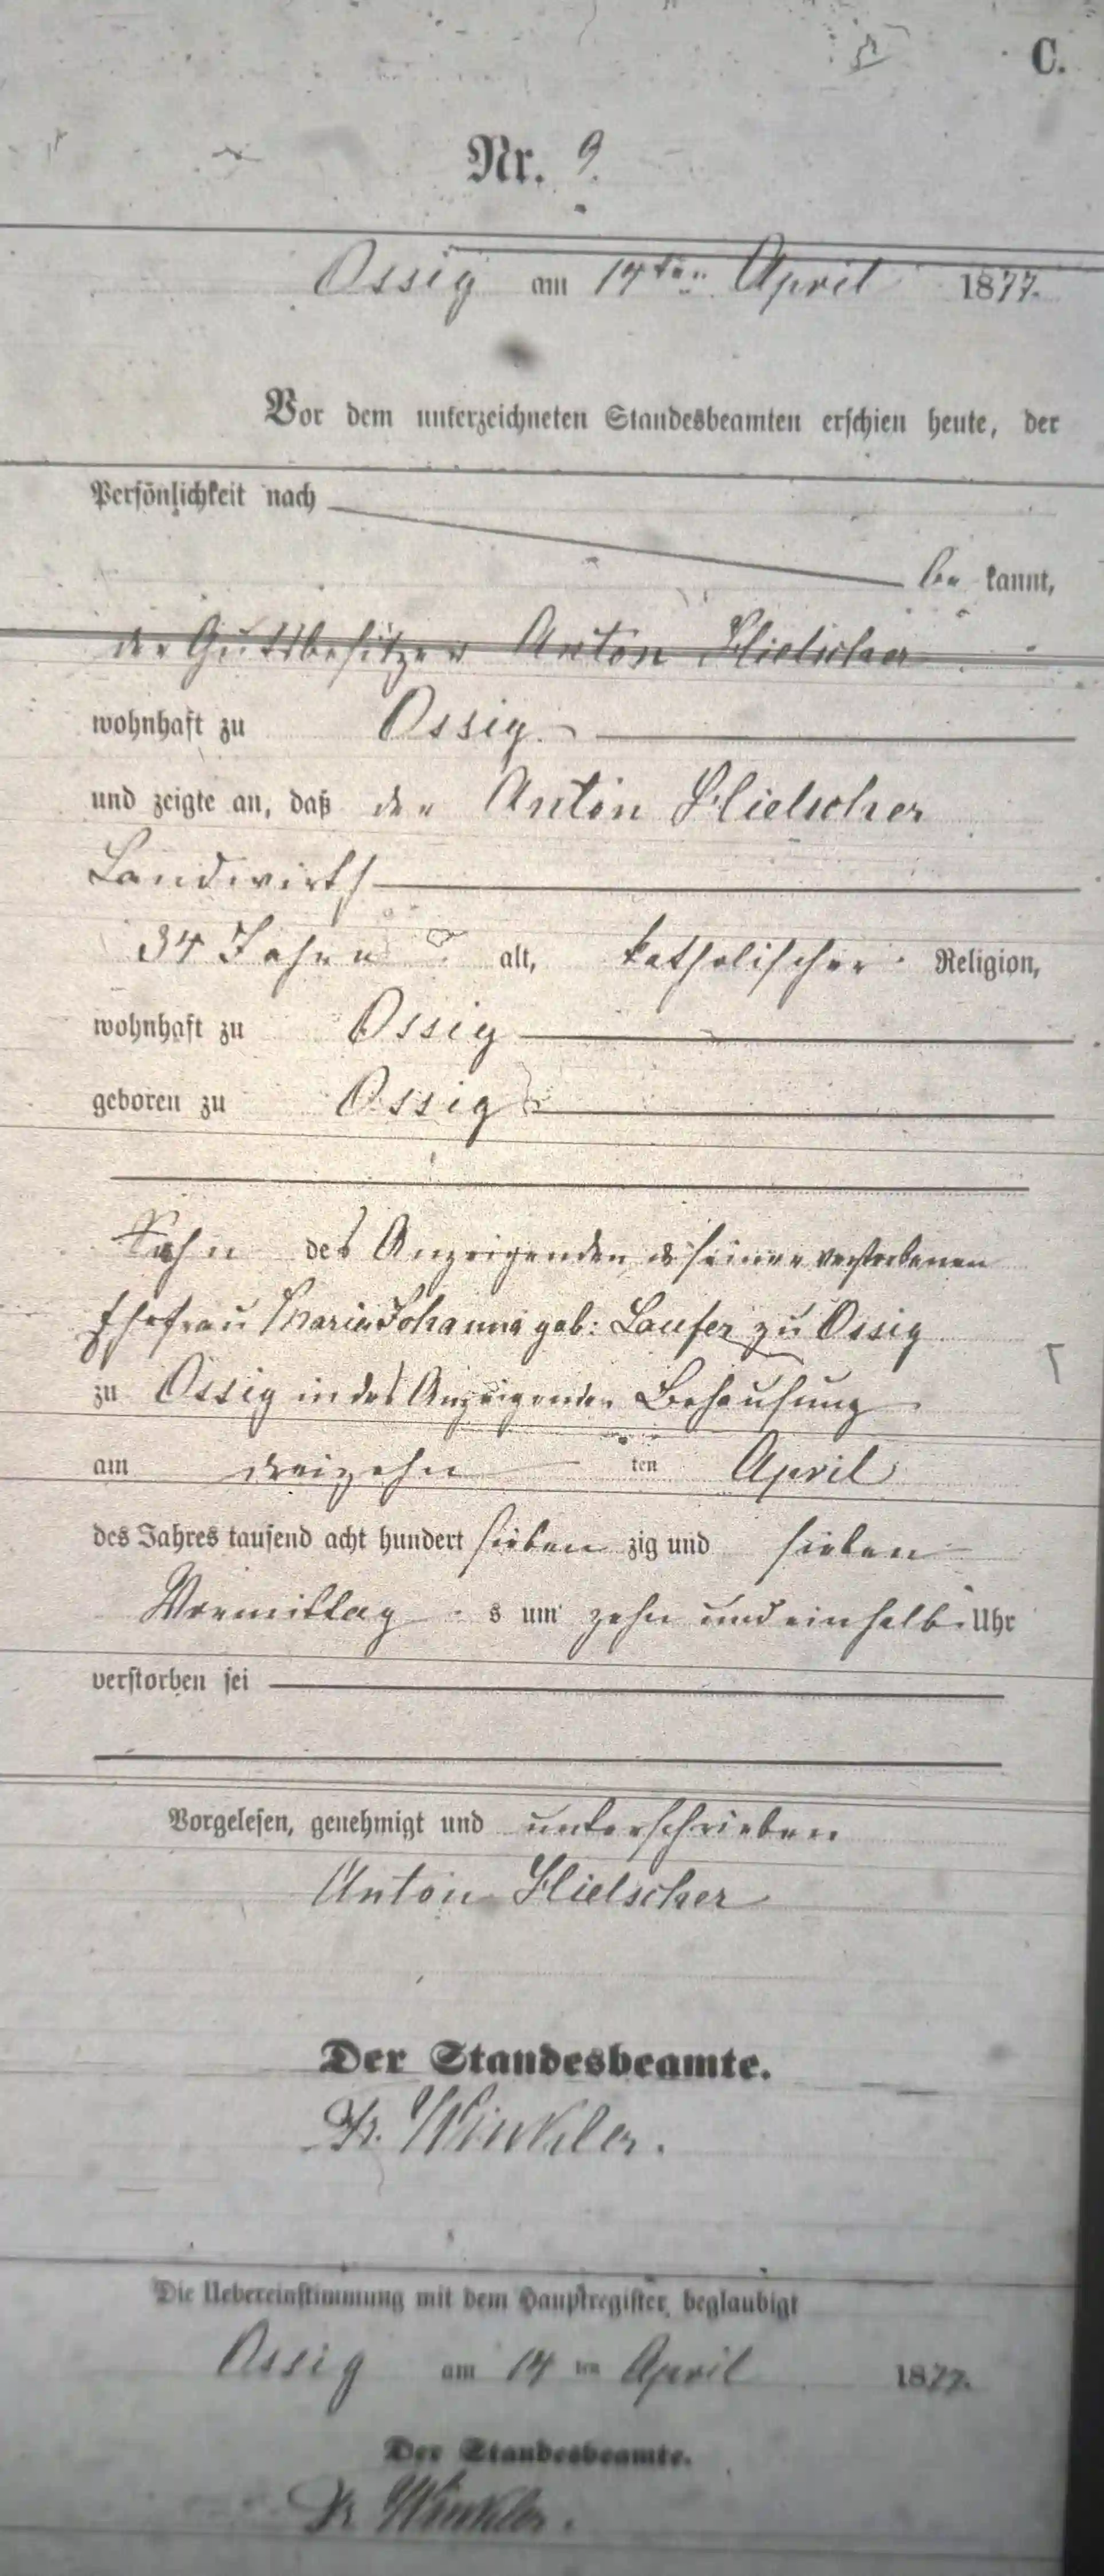 C.
Nr. 9.
Ossig am 14ten April 1877.
Vor dem unterzeichneten Standesbeamten erschien heute, der
Persönlichkeit nach
be kannt,
der Gutsbesitzer Anton Hielscher
wohnhaft zu Ossig
und zeigte an, daß der Anton Hielscher
Landwirth
34 Jahre alt, katholischer Religion,
wohnhaft zu Ossig
geboren zu Ossig
Sohn des Anzeigenden u seiner verstorbenen
Ehefrau Maria Johanna geb: Laufer zu Ossig
zu Ossig in des Anzeigenden Behausung
am dreizehn ten April
des Jahres tausend acht hundert sieben zig und sieben
Vormittag s um zehn und ein halb Uhr
verstorben sei
Vorgelesen, genehmigt und unterschrieben
Anton Hielscher
Der Standesbeamte.
Winkler.
Die Uebereinstimmung mit dem Hauptregister beglaubigt
Ossig am 14 ten April 1877.
Der Standesbeamte.
Winkler.